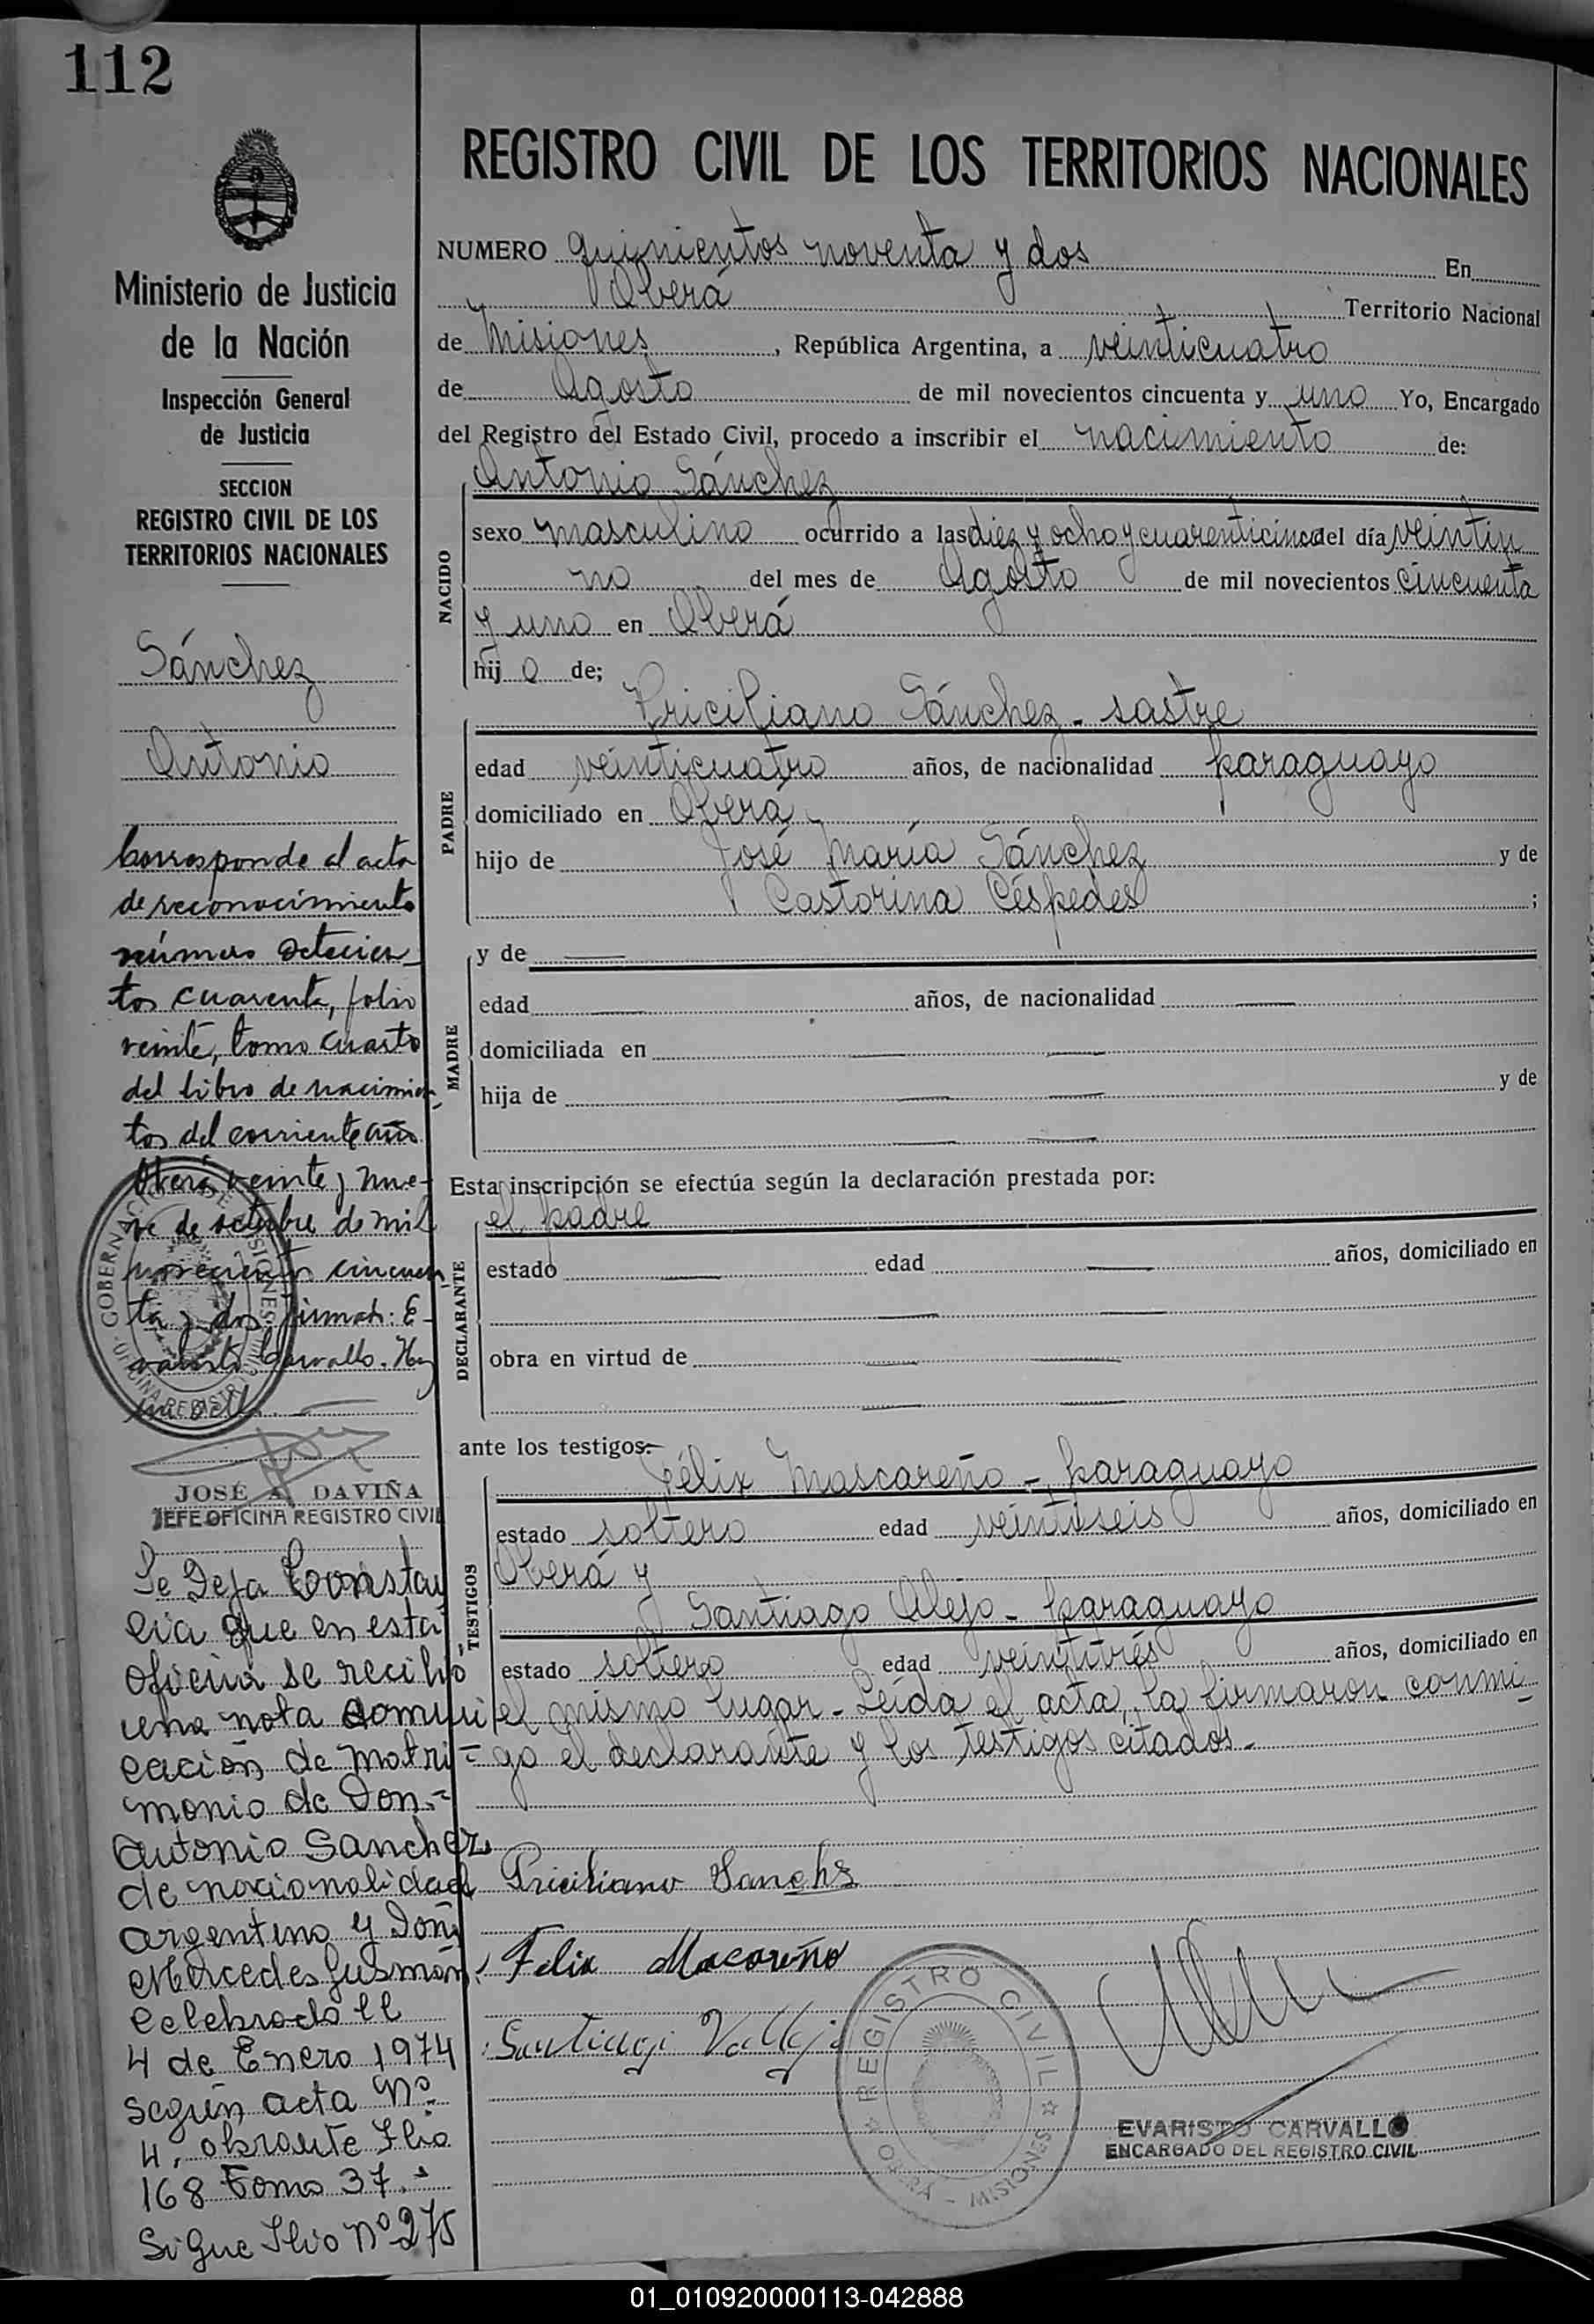 112
Ministerio de Justicia
de la Nación
Inspección General
de Justicia
SECCION
REGISTRO CIVIL DE LOS
TERRITORIOS NACIONALES
Sánchez
Antonio
Corresponde al acta
de reconocimiento
número setecien
tos cuarenta, folio
veinte, tomo cuarto
del libro de nacimien
tos del corriente año
Oberá veinte y nue-
ve de octubre de mil
novecientos cincuen
ta y dos. Firmado: E-
varisto Carvallo. Hay
un sello.
JOSÉ A. DAVIÑA
JEFE OFICINA REGISTRO CIVIL
Se Deja Constan
cia que en esta
oficina se recibió
una nota comuni
cación de matri=
monio de Don.=
Antonio Sanchez
de nacionalidad
argentino y Doña
Mercedes Gusmán
celebrado el
4 de Enero 1974
según acta Nº
4. obrante Flio
168 Tomo 37.
Sigue Flio Nº 275
REGISTRO CIVIL DE LOS TERRITORIOS NACIONALES
NUMERO quinientos noventa y dos En
Oberá Territorio Nacional
de Misiones, República Argentina, a veinticuatro
de Agosto de mil novecientos cincuenta y uno Yo, Encargado
del Registro del Estado Civil, procedo a inscribir el nacimiento de:
Antonio Sánchez
NACIDO
sexo masculino ocurrido a las diez y ocho y cuarenticinco del día veintiu
no del mes de Agosto de mil novecientos cincuenta
y uno en Oberá
hijo de;
Priciliano Sánchez - sastre
PADRE
edad veinticuatro años, de nacionalidad paraguayo
domiciliado en Oberá
hijo de José María Sánchez y de
Castorina Céspedes ;
MADRE
y de
edad años, de nacionalidad
domiciliada en
hija de y de
Esta inscripción se efectúa según la declaración prestada por:
el padre
DECLARANTE
estado edad años, domiciliado en
obra en virtud de
ante los testigos:
Félix Mascareño - paraguayo
TESTIGOS
estado soltero edad veintiseis años, domiciliado en
Oberá y
Santiago Alejo - paraguayo
estado soltero edad veintitrés años, domiciliado en
el mismo lugar - Leída el acta, la firmaron conmi
go el declarante y los testigos citados.-
Priciliano Sanchz
Felix Macareño
Santiago Vallejo
REGISTRO CIVIL
OBERA - MISIONES
EVARISTO CARVALLO
ENCARGADO DEL REGISTRO CIVIL
01_010920000113-042888